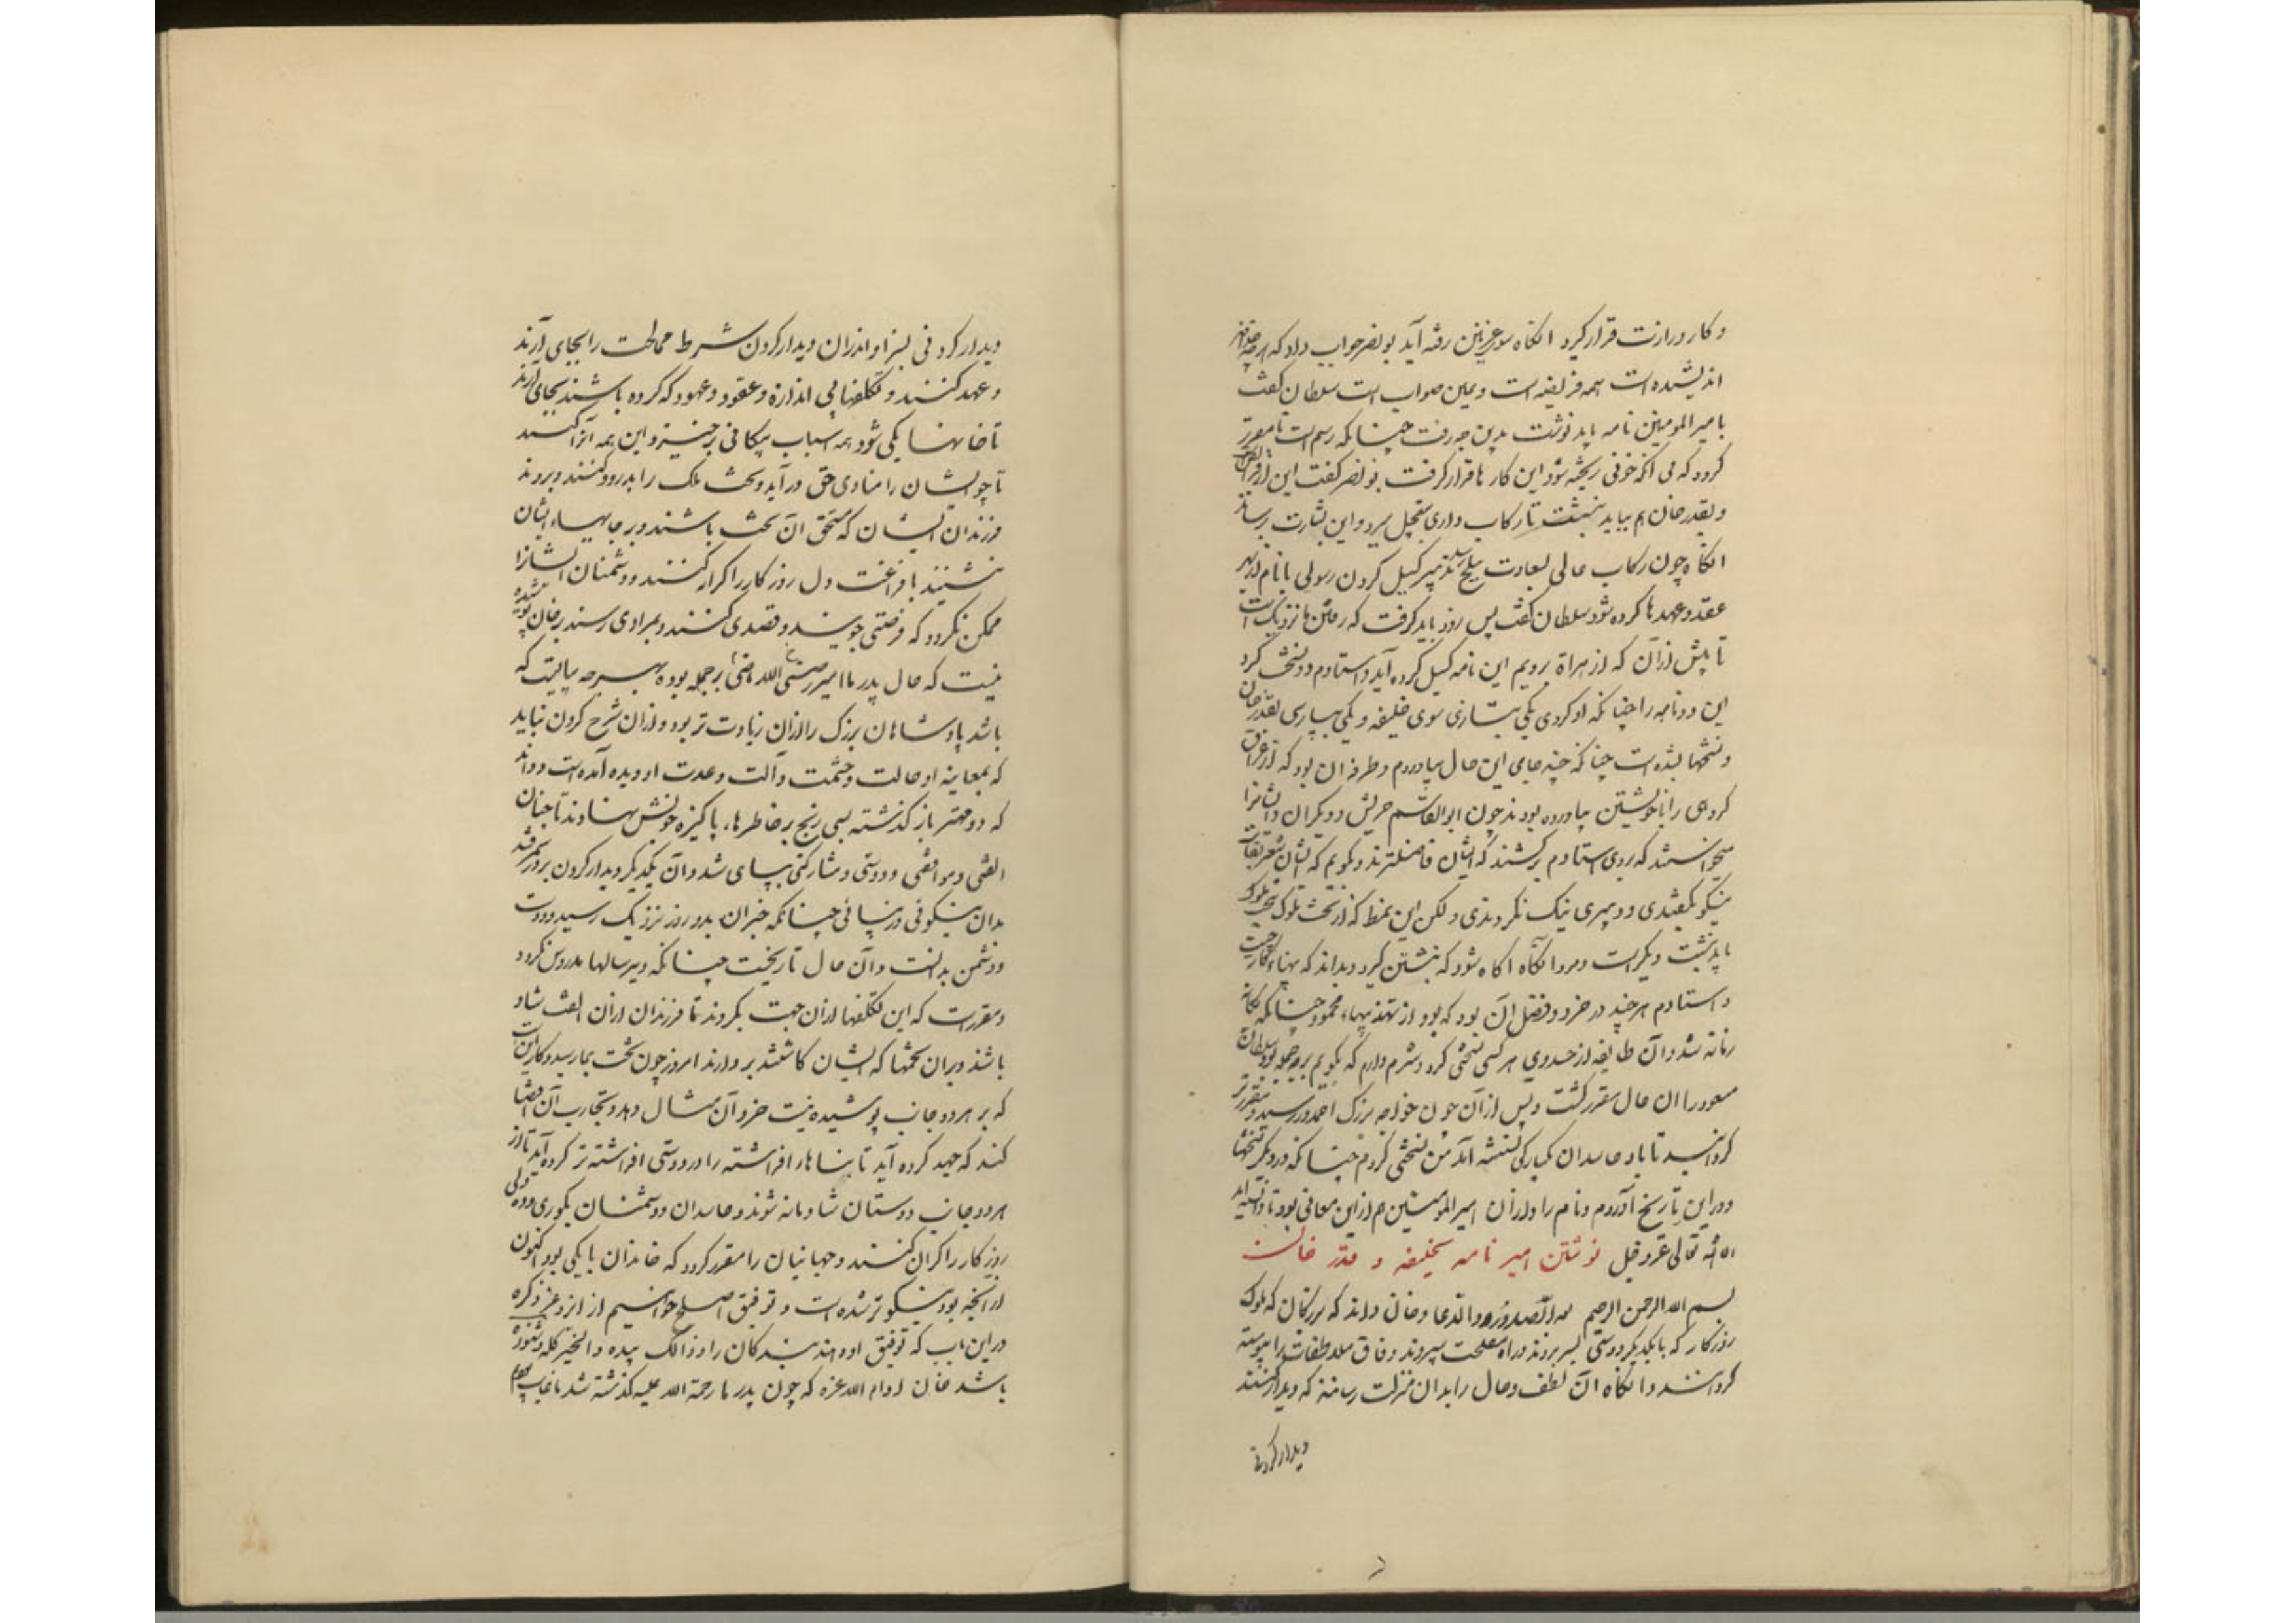 و کار وزارت قرار گیرد انگاه سوی غزنین رفته آید بونصر جواب داد که هرچه خداوند
اندیشیده است همه فریضه است و همین صواب است سلطان گفت
با میر المومنین نامه باید نوشت بدین چه رفت چنانکه رسم است تا مقرر
گردد که بی انکه خونی ریخته شود این کار ها قرار گرفت بونصر گفت این از فرایض است
و بقدر خان هم بباید نبشت تا رکاب داری بتعجیل ببرد و این بشارت برساند
انگاه چون رکاب عالی بسعادت ببلخ رسد تدبیر گسیل کردن رسولی با نام از بهر
عقد و عهد ها کرده شود سلطان گفت پس زود باید گرفت که رفتن ما نزدیک است
تا پیش از آن که از هراة برویم این نامه گسیل کرده آید و استادم دو نسخت کرد
این دو نامه را چنانکه او کردی یکی بتازی سوی خلیفه و یکی بپارسی بقدر خان
و نسختها بشده است چنانکه چند جای این حال بیاوردم و طرفه ان بود که از عراق
گروهی را با خویشتن بیاورده بودند چون ابوالقاسم حریش و دیگران و ایشانرا
میخواستند که بروی استادم برکشند که ایشان فاضلترند و بگویم که ایشان شعر بغایت
نیکو بگفتندی و دبیری نیک نکردندی و لکن این نمط که از تخت ملوک بتخت ملوک
باید نبشت دیگر است و مرد انگاه آگاه شود که نبشتن گیرد و بداند که پهناء کار چیست
و استادم هر چند در خرد و فضل آن بود که بود از تهذیبهاء محمودی چنانکه یگانه
زمانه شد و آن طایفه از حسد وی هر کسی نسختی کرد و شرم دارم که بگویم بر چه جمله بود سلطان
مسعود را ان حال مقرر گشت و پس از آن چون خواجه بزرگ احمد در رسید و مقررتر
گردانید تا باد حاسدان یکبارگی نشسته آمد من نسختی کردم چنانکه در دیگر نسختها
و در این تاریخ آوردم و نام را و از ان امیر المومنین هم از این معانی بود تا دانسته آید
ان شاء الله تعالی عز و جل نوشتن امیر نامه بخلیفه و قدر خان
بسم الله الرحمن الرحیم بعد الصدر و الدعا و خان داند که بزرگان که ملوک
روزگار که با یکدیگر دوستی بسر برند و راه مصلحت سپرند و وفاق ملاطفات را پیوسته
گردانند و انگاه ان لطف و حال را بدان منزلت رسانند که دیدار کنند
دیدار کردنی
دیدار کردنی بسزا و اندران دیدار کردن شرط ممالحت را بجای آرند
و عهد کنند و تکلفهای بی اندازه و عقود و عهود که کرده باشند بجای آرند
تا خانها یکی شود و همه اسباب بیگانگی برخیزد و این همه آنرا کنند
تا چو ایشان را منادی حق در آید و تخت ملک را بدرود کنند و بروند
فرزندان ایشان که مستحق ان تخت باشند و بر جایهاء ایشان
بنشینند با فراغت دل روزگار را کرانه کنند و دشمنان ایشانرا
ممکن نگردد که فرصتی جویند و قصدی کنند و بمرادی رسند بر خان پوشیده
نیست که حال پدر ما امیر ماضی رضی الله عنه بر چه جمله بود و بهر چه ببایست که
باشد پادشاهان بزرگ را از ان زیادت تر بود و از ان شرح کردن نباید
که بمعاینه او حالت و حشمت و آلت و عدت او دیده آمده است و داند
که دو مهتر باز گذشته بسی رنج بر خاطرهاء پاکیزه خویش نهادند تا چنان
الفتی و موافقتی و دوستی و مشارکتی بپای شد و آن یکدیگر دیدار کردن بر در سمرقند
بدان نیکوئی و زیبائی چنانکه خبر ان بدور و نزدیک رسید و دوست
و دشمن بدانست و آن حال تاریخیست چنانکه دیر سالها مدروس نگردد
و مقرر است که این تکلفها از ان جهت بکردند تا فرزندان از ان الفت شاد
باشند و بر ان تخمها که ایشان کاشتند بردارند امروز چون تخت بما رسید و کار این است
که بر هر دو جانب پوشیده نیست خرد آن مثال دهد و تجارب آن اقتضا
کند که جهد کرده آید تا بناهاء افراشته را در دوستی افراشته تر کرده آید تا از
هر دو جانب دوستان شادمانه شوند و حاسدان و دشمنان بکوری و ده دلی
روزگار را کران کنند و جهانیان را مقرر گردد که خاندان ما یکی بود اکنون
از آنچه بود نیکوتر شده است و توفیق اصلح خواهیم از ایزد عز ذکره
در این باب که توفیق او دهد بندگان را و ذالک بیده و الخیر کله و شنوده
باشد خان ادام الله عزه که چون پدر ما رحمة الله علیه گذشته شد ما غایب بودیم